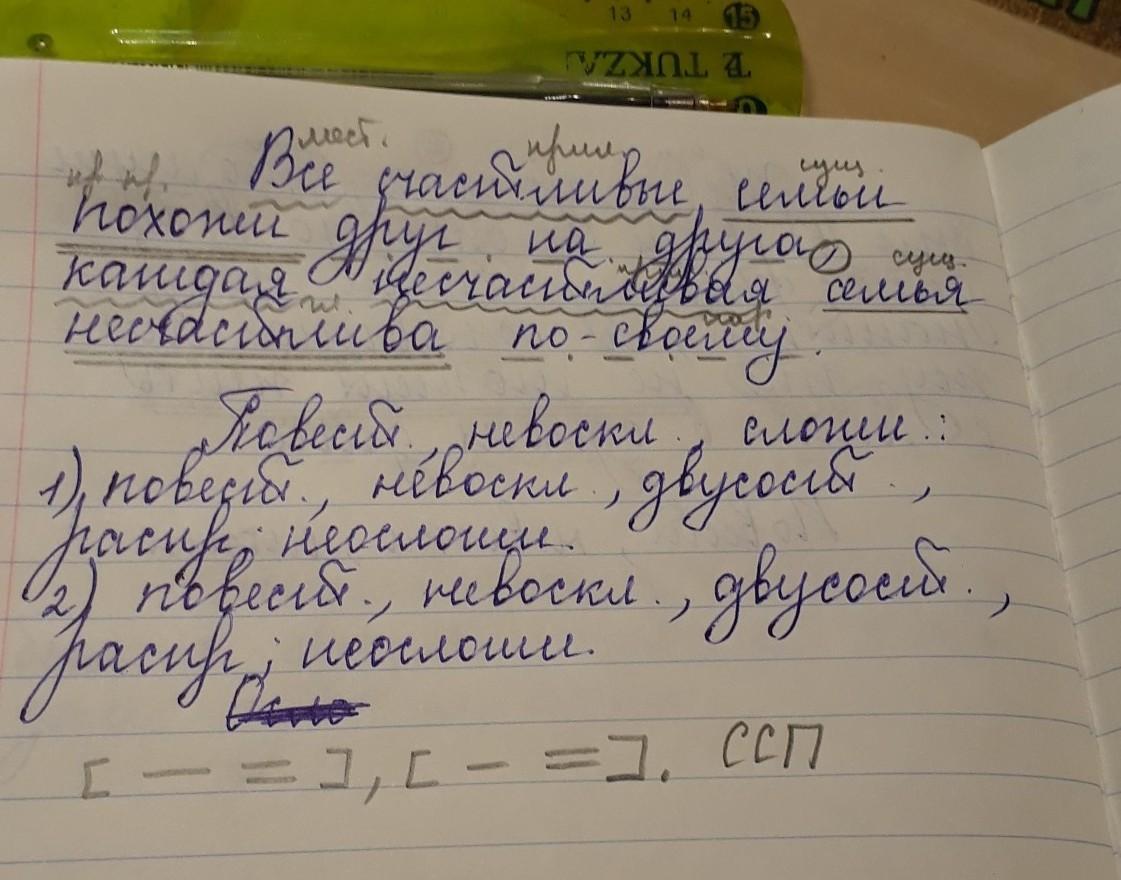 13 14 15
TUKZA
мест. прил. сущ.
пр. пр. Все счастливые семьи
похожи друг на друга, сущ.
каждая несчастливая семья
гл. нар.
несчастлива по-своему.
Повест., невоскл., сложн.:
1) повест., невоскл., двусост.,
распр., неосложн.
2) повест., невоскл., двусост.,
распр., неосложн.
[ — = ], [ — = ]. ССП